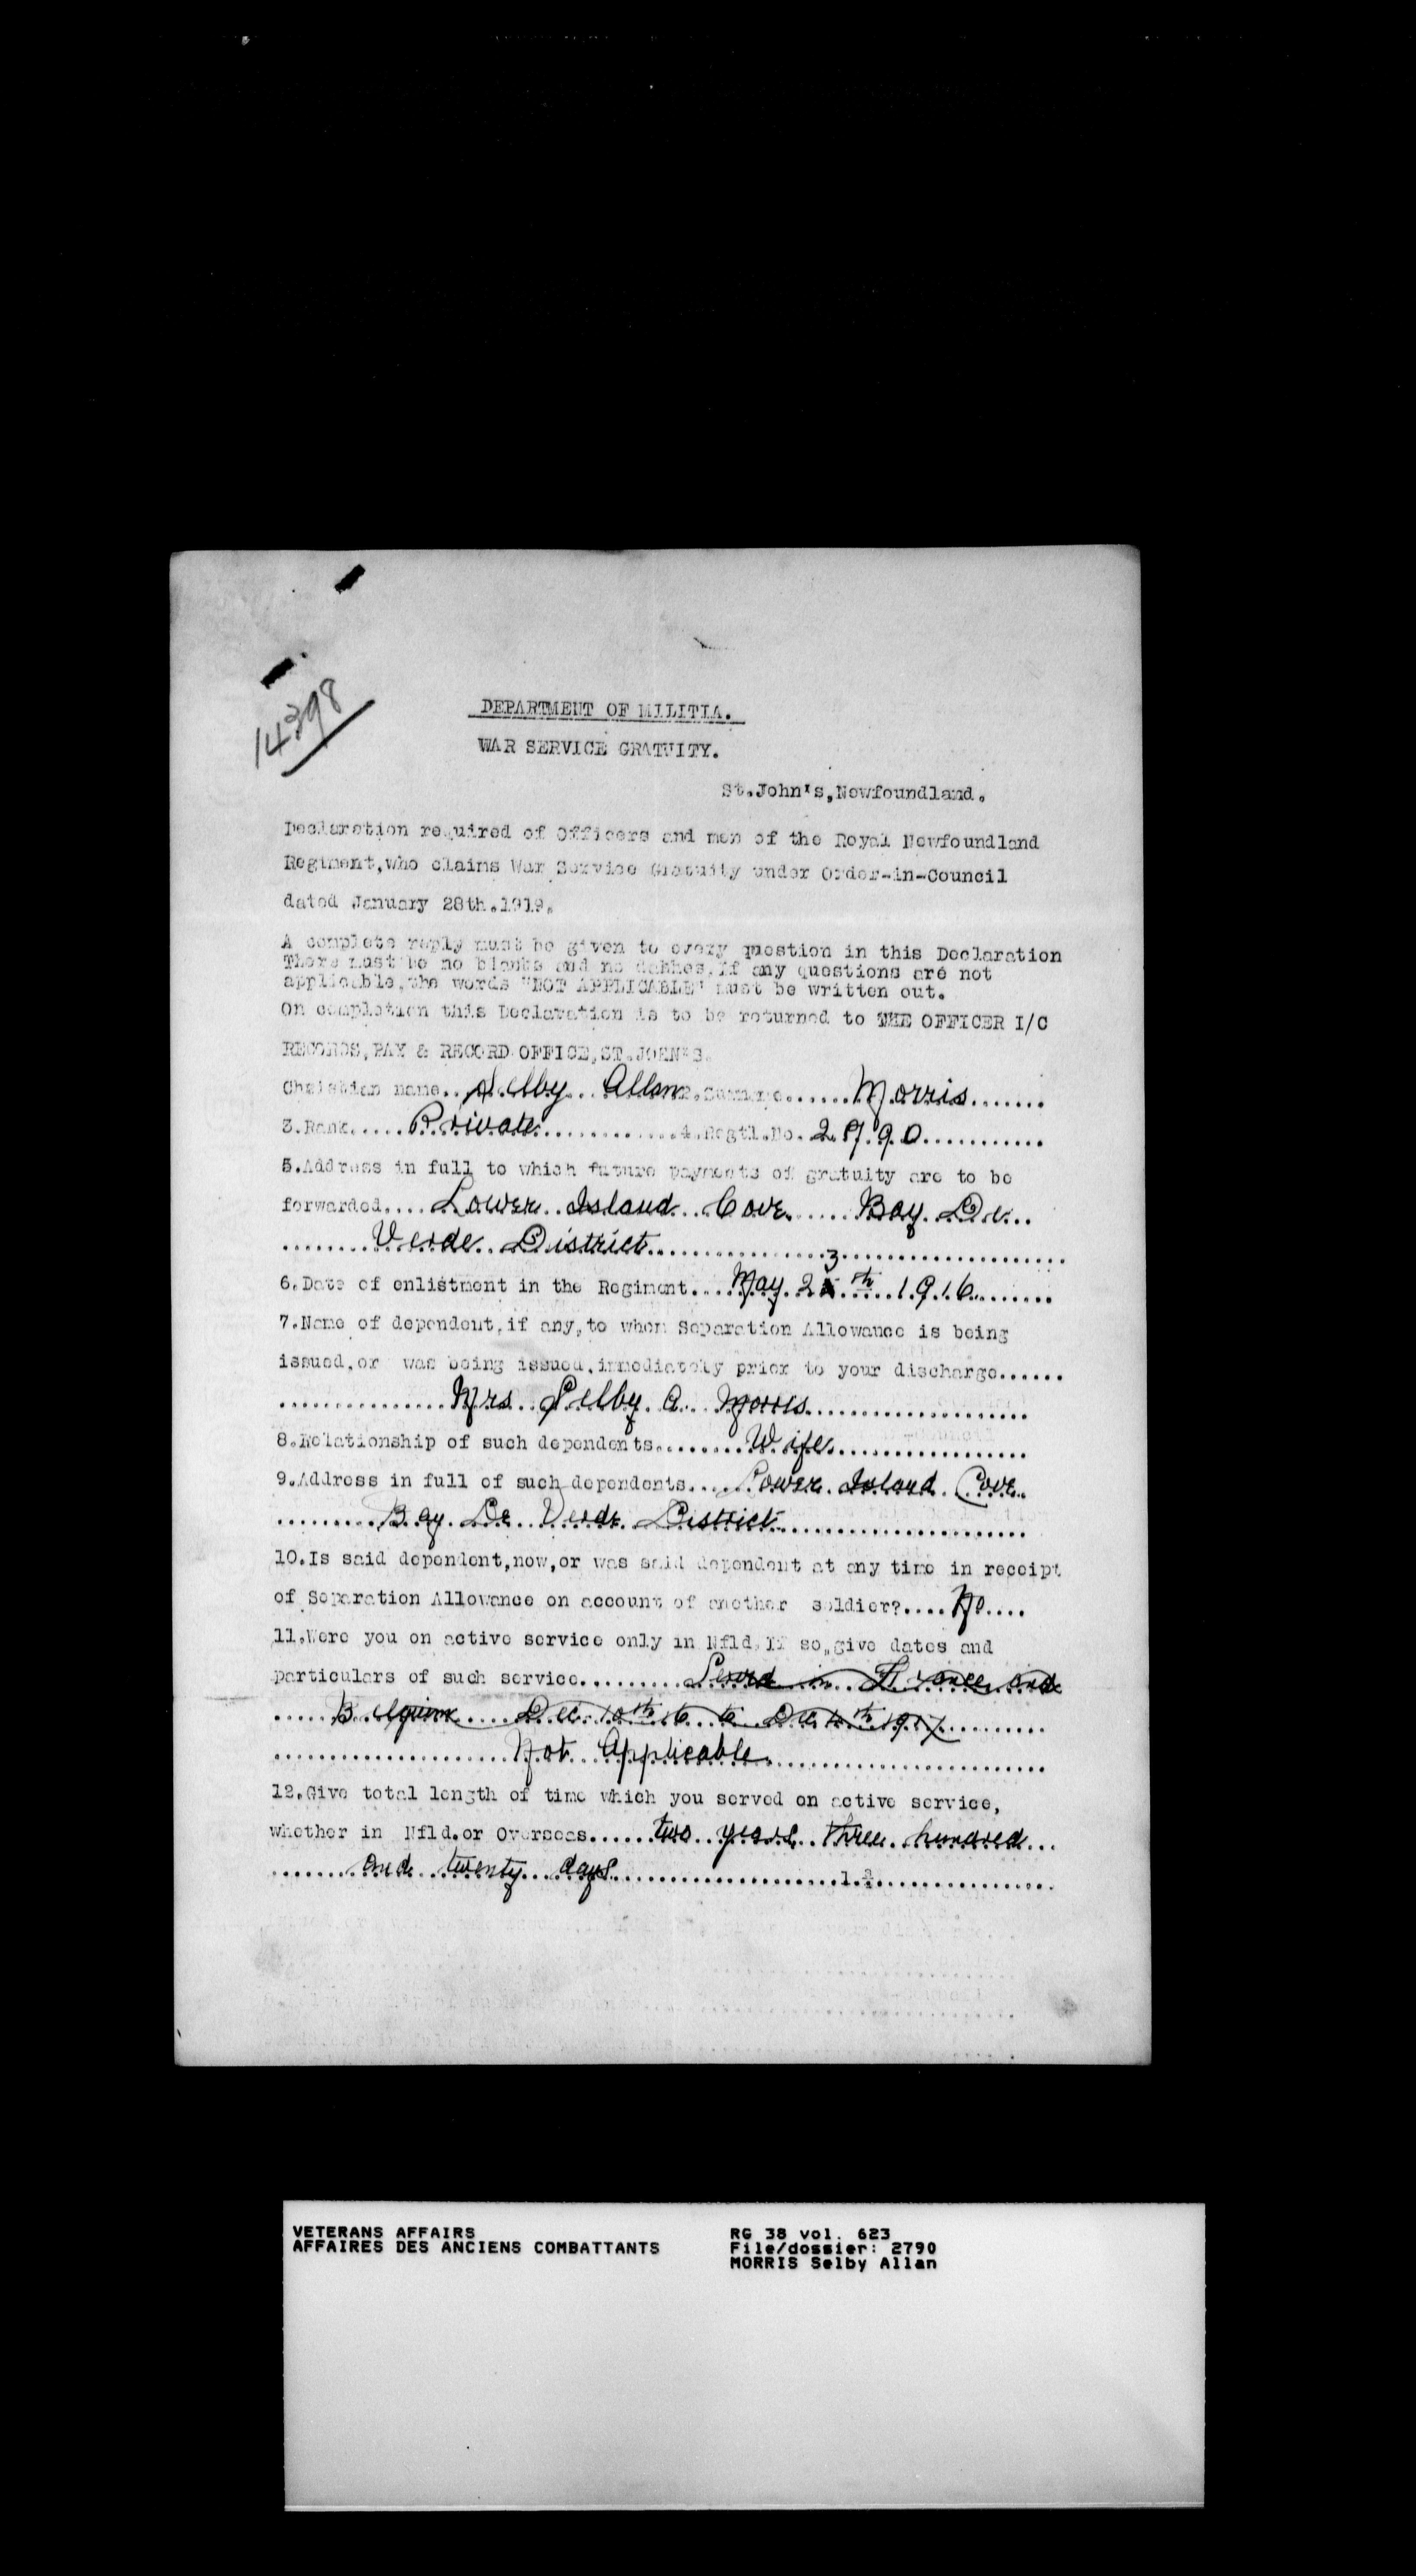 14398
DEPARTMENT OF MILITIA.
WAR SERVICE GRATUITY.
St.John's,Newfoundland.
Declaration required of Officers and men of the Royal Newfoundland
Regiment,who claims War Service Gratuity under Order-in-Council
dated January 28th.1919.
A complete reply must be given to every question in this Declaration
There must be no blanks and no dashes.If any questions are not
applicable,the words "NOT APPLICABLE" must be written out.
On completion this Declaration is to be returned to THE OFFICER I/C
RECORDS,PAY & RECORD OFFICE,ST.JOHN'S.
Christian name..Selby Allan 2.Surname......Morris.......
3.Rank.....Private..............4.Regtl.No. 2790...........
5.Address in full to which future payments of gratuity are to be
forwarded....Lower Island Cove.....Bay De...
........Verde District..............................
6.Date of enlistment in the Regiment....May 23th 1916........
7.Name of dependent,if any,to whom Separation Allowance is being
issued,or was being issued,immediately prior to your discharge......
...............Mrs Selby A. Morris....................
8.Relationship of such dependents.........Wife..................
9.Address in full of such dependents.....Lower Island Cove..
.........Bay De Verde District.......................
10.Is said dependent,now,or was said dependent at any time in receipt
of Separation Allowance on account of another soldier?....No....
11.Were you on active service only in Nfld.If so,give dates and
particulars of such service..........Served in France and
.....Belguim.....Dec 10th 16 to Dec 4th 1917..........
.....................Not Applicable..........................
12.Give total length of time which you served on active service,
whether in Nfld.or Overseas......two years three hundred...
........and twenty days......................................
VETERANS AFFAIRS
AFFAIRES DES ANCIENS COMBATTANTS
RG 38 vol. 623
File/dossier: 2790
MORRIS Selby Allan